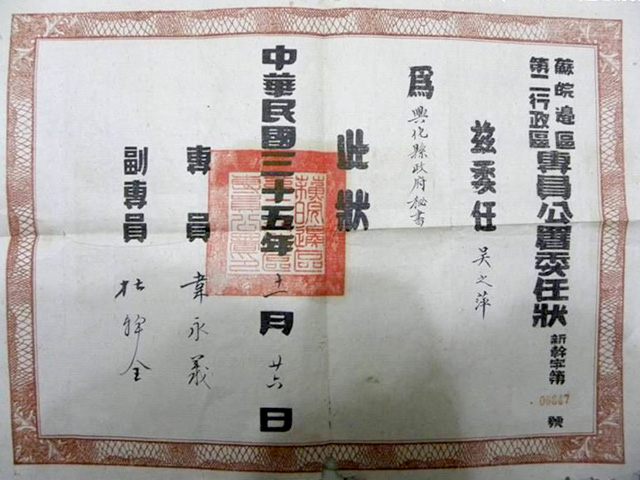 蘇皖邊區
第二行政區
專員公署委任狀
新幹字第
00887
號
茲委任 吴之萍
爲 興化縣政府秘書
此狀
中華民國三十五年 十一月 廿六日
專員 韋永義
副專員 杜幹全